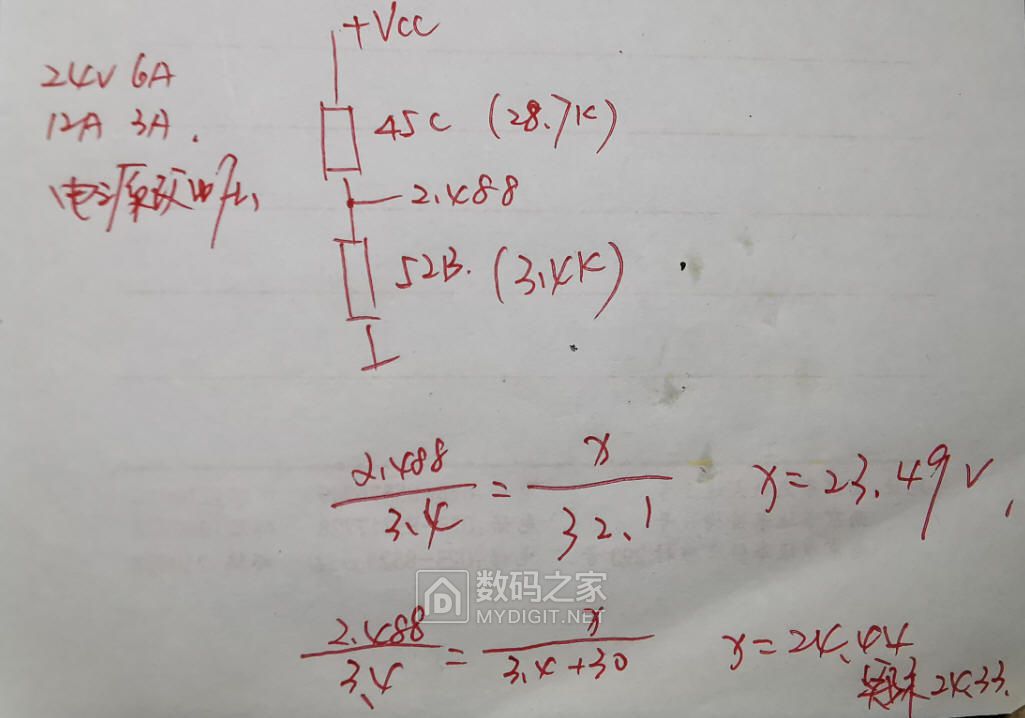 +Vcc
24V 6A
12A 3A.
电源改电压
45C (28.7K)
2.488
52B. (3.4K)
2.488/3.4 = x/32.1 x=23.49V,
数码之家
MYDIGIT.NET
2.488/3.4 = x/3.4+30 x=24.44
实际 24.33.